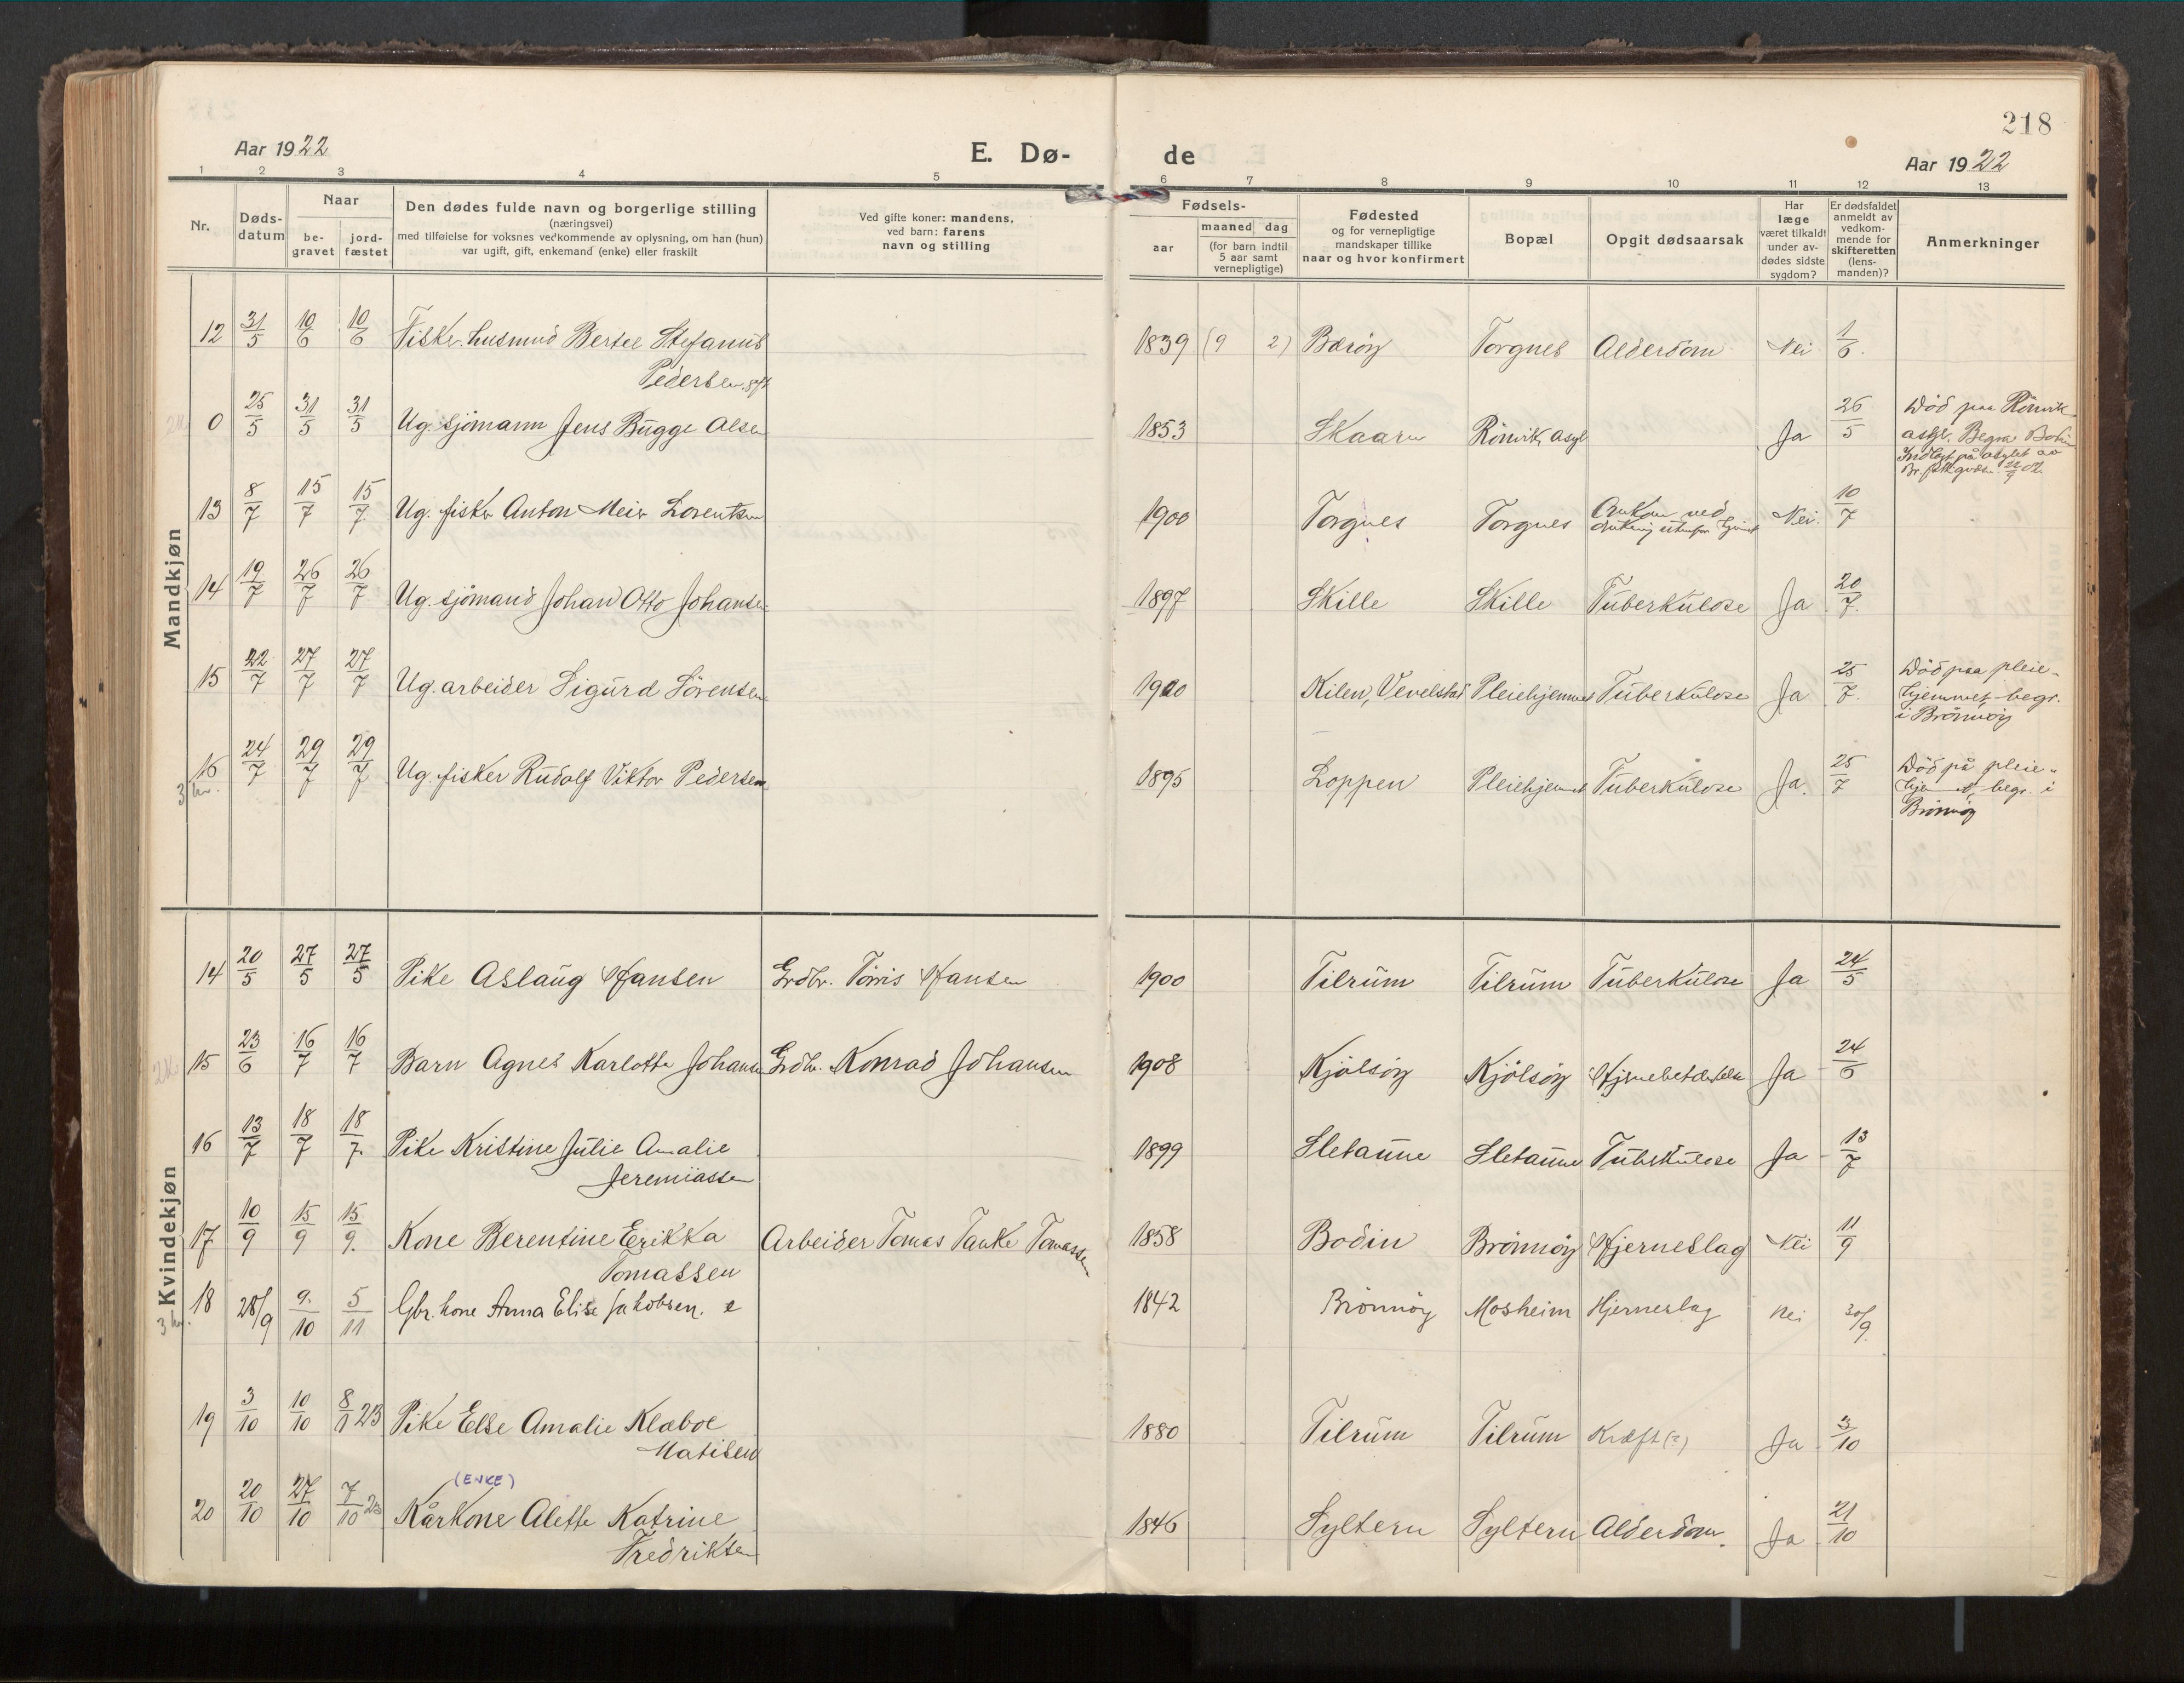 218
Aar 1922
E. Dø-
de
Aar 1922
1 2 3 4 5 6 7 8 9 10 11 12 13
Nr.
Døds-
datum
Naar
be-
gravet
jord-
fæstet
Den dødes fulde navn og borgerlige stilling
(næringsvei)
med tilføielse for voksnes vedkommende av oplysning, om han (hun)
var ugift, gift, enkemand (enke) eller fraskilt
Ved gifte koner: mandens,
ved barn: farens
navn og stilling
Fødsels-
aar
maaned dag
(for barn indtil
5 aar samt
vernepligtige)
Fødested
og for vernepligtige
mandskaper tillike
naar og hvor konfirmert
Bopæl
Opgit dødsaarsak
Har
læge
været tilkaldt
under av-
dødes sidste
sygdom?
Er dødsfaldet
anmeldt av
vedkom-
mende for
skifteretten
(lens-
manden)?
Anmerkninger
Mandkjøn
12 31/5 10/6 10/6 Fisker. husmnd Bertel Stefanus 1839 (9 2) Torgnes Alderdom Nei 1/6
Pedersen
0 25/5 31/5 31/5 Ug. sjömann Jens Bugge Olsen 1853 Skaaren Rönvik Asyl Ja 26/5 Död paa Rönvik
asyl. Begra. Bodin
13 8/7 15/7 15/7 Ug. fisker Anton Meier Lorentsen 1900 Torgnes Torgnes Omkom ved Nei. 10/7
14 19/7 26/7 26/7 Ug. sjömand Johan Otto Johansen 1897 Skille Skille Tuberkulose Ja 20/7
15 22/7 27/7 27/7 Ug. arbeider Sigurd Sörensen 1900 Kilen, Vevelstad Pleiehjemmet Tuberkulose Ja 25/7 Död paa pleie-
hjemmet, begr.
i Brönnöy
16 24/7 29/7 29/7 Ug. fisker Rudolf Viktor Pedersen 1895 Loppen Pleiehjemmet Tuberkulose Ja. 25/7 Död på pleie-
hjemmet, begr. i
Brönnöy
3 kv.
Kvindekjøn
14 20/5 27/5 27/5 Pike Aslaug Hansen Grdbr. Törris Hansen 1900 Tilrum Tilrum Tuberkulose Ja 24/5
15 23/6 16/7 16/7 Barn Agnes Karlotte Johansen Grdbr. Konrad Johansen 1908 Kjölsöy Kjölsöy Hjernebetændelse Ja 24/6
16 13/7 18/7 18/7 Pike Kristine Julie Amalie 1899 Sletaune Sletaune Tuberkulose Ja 13/7
Jeremiassen
17 10/9 15/9 15/9 Kone Berentine Erikka Arbeider Tomas Tanke Tomassen 1858 Bodin Brönnöy Hjerneslag Nei 11/9
Tomassen
18 28/9 9/10 5/11 Gbr. kone Anna Elise Jakobsen. e 1842 Brönnöy Mosheim Hjerneslag Nei 30/9
3 kv.
19 3/10 10/10 8/1 23 Pike Else Amalie Klæboe 1880 Tilrum Tilrum Kræft (?) Ja 3/10
Matisen
(ENKE)
20 20/10 27/10 7/10 23 Kårkone Alette Katrine 1846 Syltern Syltern Alderdom. Ja 21/10
Fredriksen